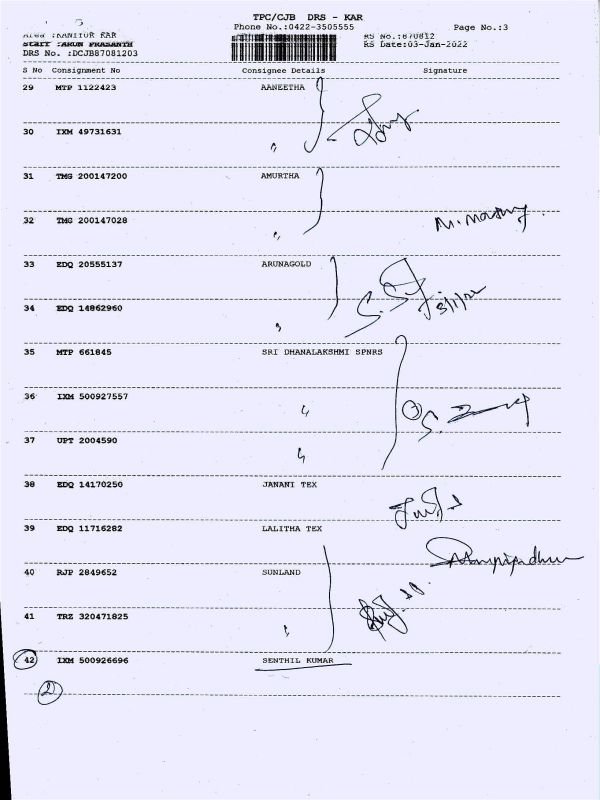 TPC/CJB DRS - KAR
Phone No.:0422-3505555 Page No.:3
Area :KANITUR KAR RS No.:870812
Staff :ARUN PRASANTH RS Date:03-Jan-2022
DRS No. :DCJB87081203
S No Consignment No Consignee Details Signature
29 MTP 1122423 AANEETHA
30 IXM 49731631 "
31 TMG 200147200 AMURTHA
32 TMG 200147028 "
33 EDQ 20555137 ARUNAGOLD
3/1/22
34 EDQ 14862960 "
35 MTP 661845 SRI DHANALAKSHMI SPNRS
36 IXM 500927557 "
37 UPT 2004590 "
38 EDQ 14170250 JANANI TEX
39 EDQ 11716282 LALITHA TEX
40 RJP 2849652 SUNLAND
41 TRZ 320471825 "
42 IXM 500926696 SENTHIL KUMAR
2